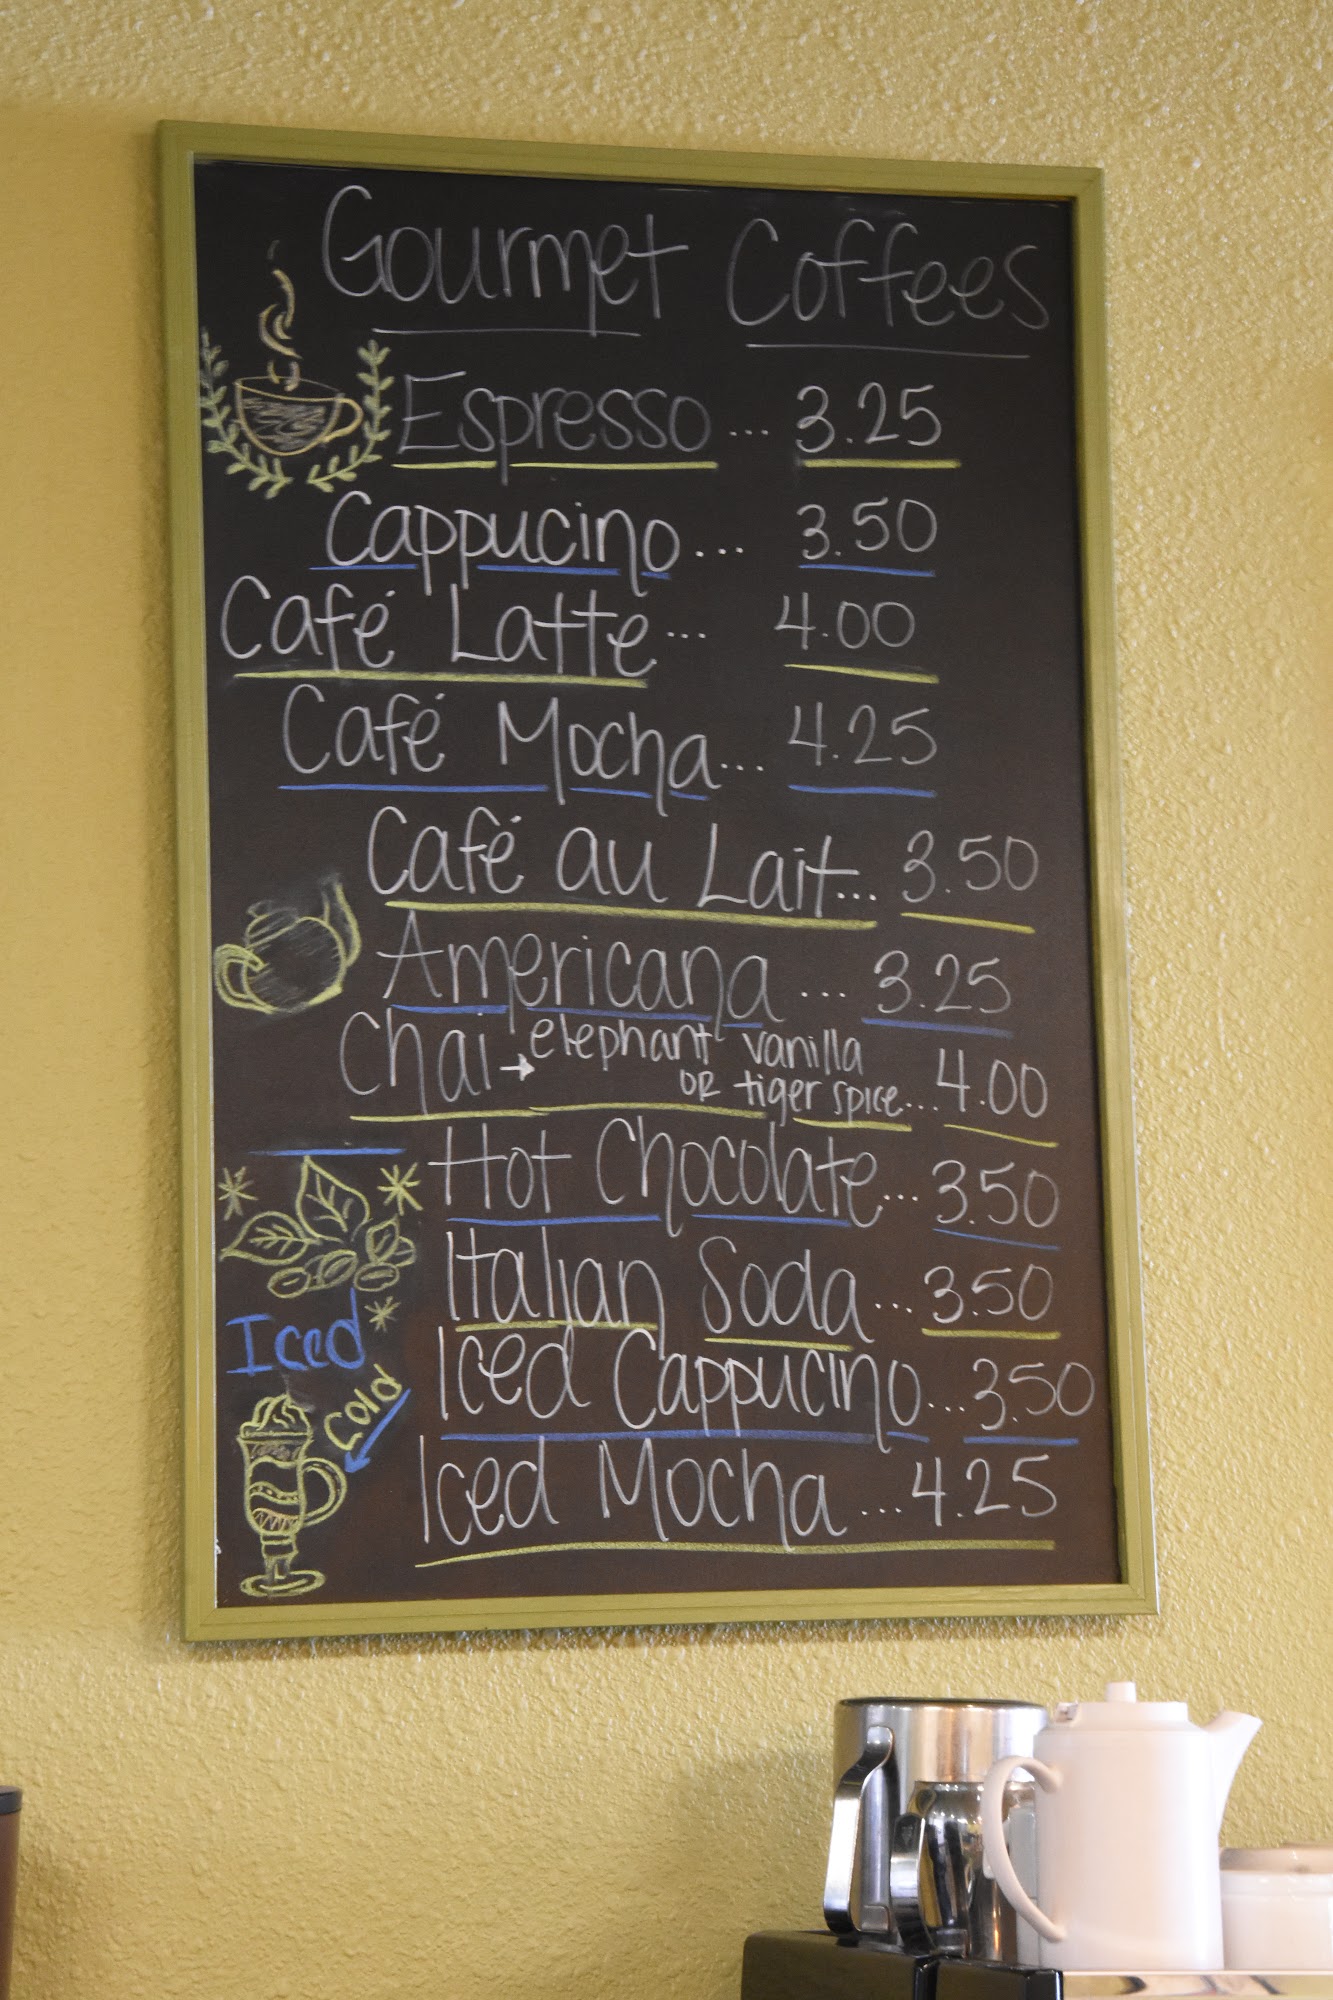 Gourmet Coffees
Espresso ... 3.25
Cappucino... 3.50
Café Latte... 4.00
Café Mocha... 4.25
Café au Lait... 3.50
Americana ... 3.25
Chai → elephant vanilla
OR tiger spice... 4.00
Hot Chocolate... 3.50
Italian Soda... 3.50
Iced Cappucino... 3.50
Iced Mocha ... 4.25
Iced
Cold